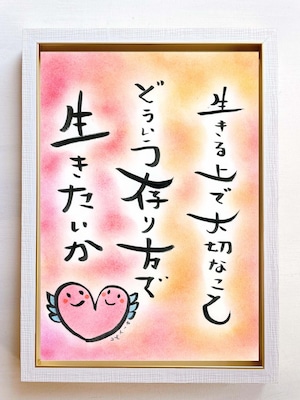 生きる上で大切なこと
どういう存り方で
生きたいか